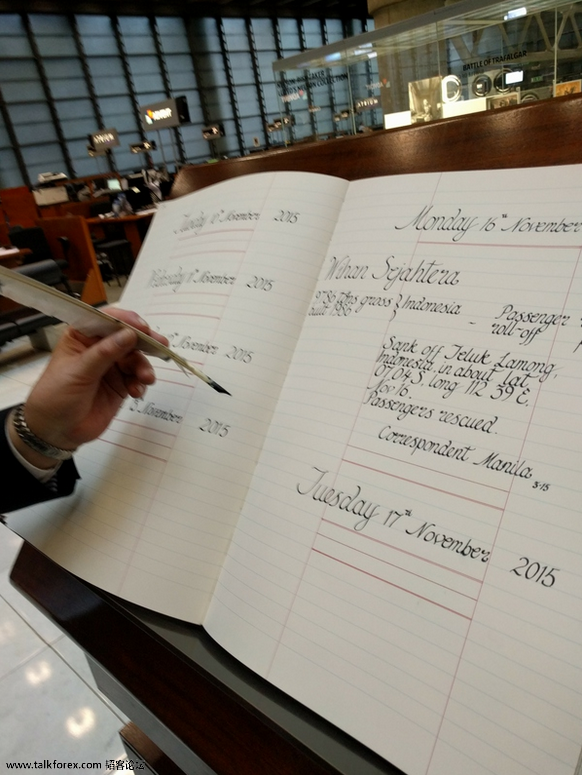 BATTLE OF TRAFALGAR
Tuesday 10th November 2015
Wednesday 11th November 2015
November 2015
November 2015
Monday 16th November
Wihan Sejahtera
9786 Tns gross Indonesia
built 1986
Passenger
roll-off
Sank off Teluk Lamong,
Indonesia in about lat.
07.04 S. long 112 39 E.
Nov 16.
Passengers rescued.
Correspondent Manila
8-15
Tuesday 17th November 2015
www.talkforex.com 韬客论坛